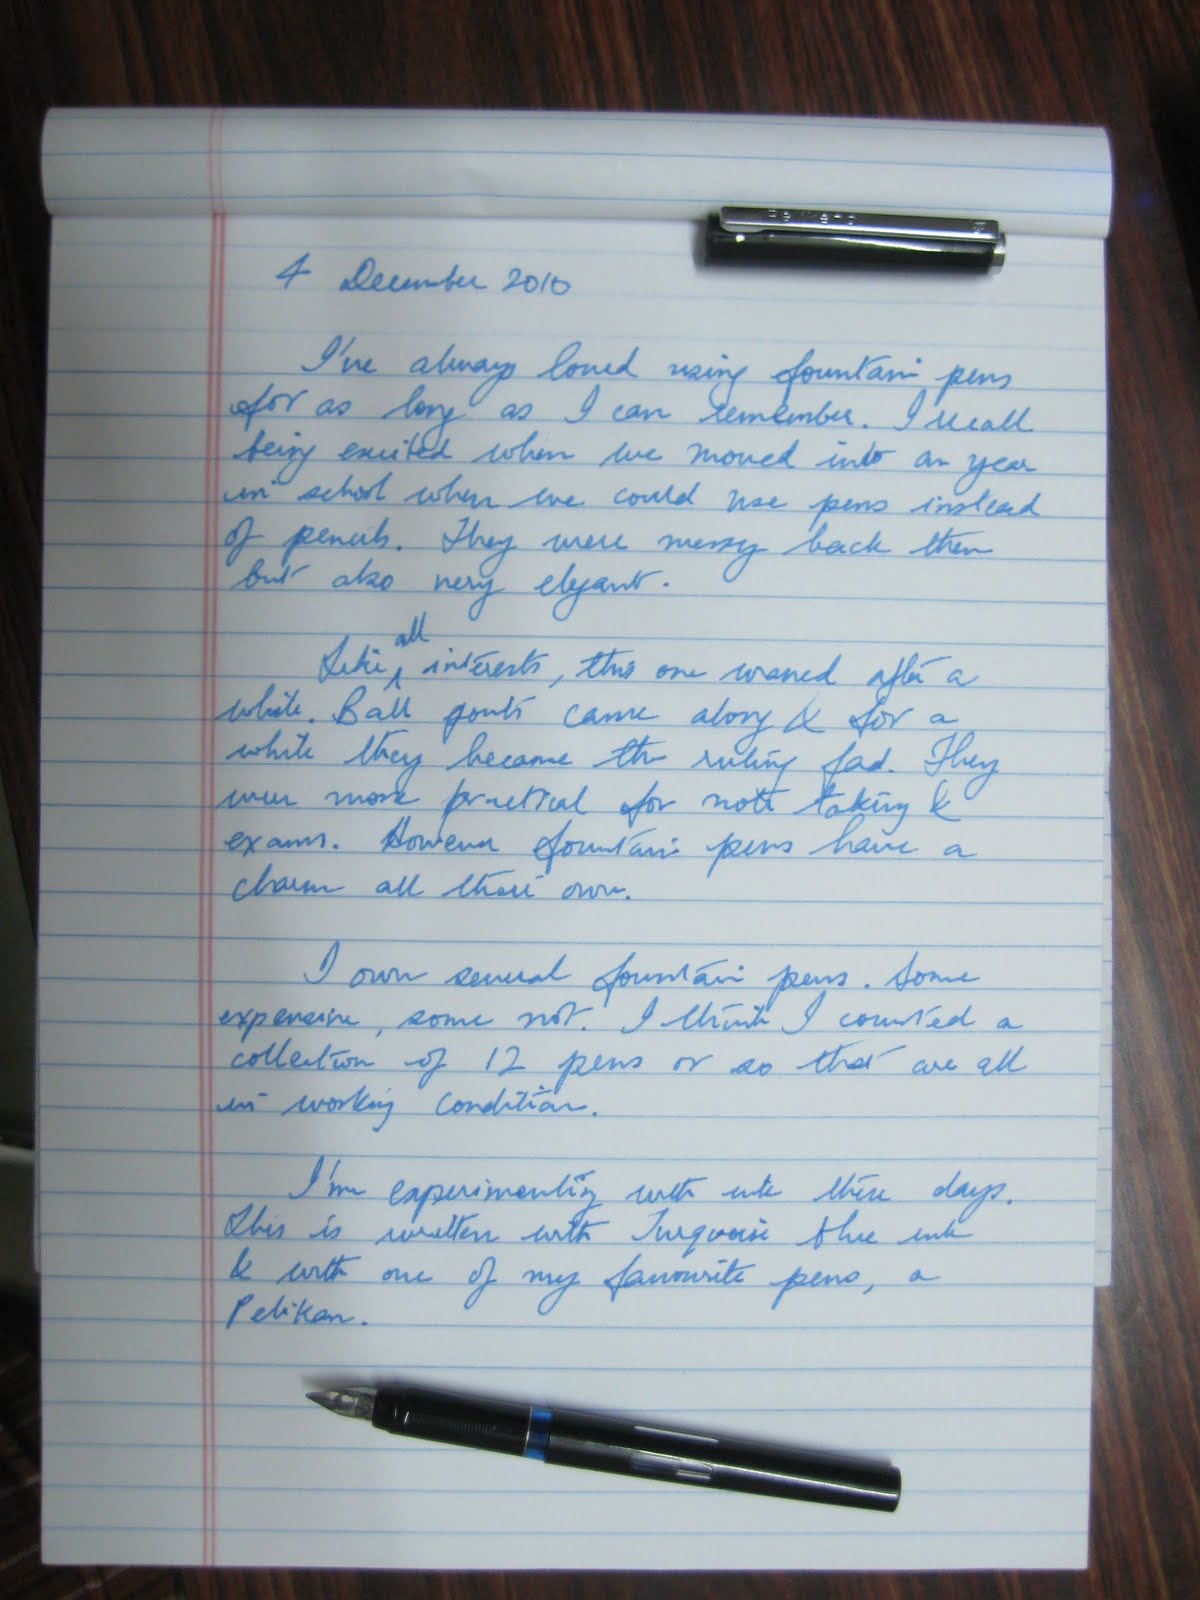 4 December 2010
I've always loved using fountain pens
for as long as I can remember. I recall
being excited when we moved into an year
in school when we could use pens instead
of pencils. They were messy back then
but also very elegant.
Like all interests, this one waned after a
while. Ball points came along & for a
while they became the ruling fad. They
were more practical for note taking &
exams. However fountain pens have a
charm all their own.
I own several fountain pens. Some
expensive, some not. I think I counted a
collection of 12 pens or so that are all
in working condition.
I'm experimenting with ink these days.
This is written with Turquoise blue ink
& with one of my favourite pens, a
Pelikan.